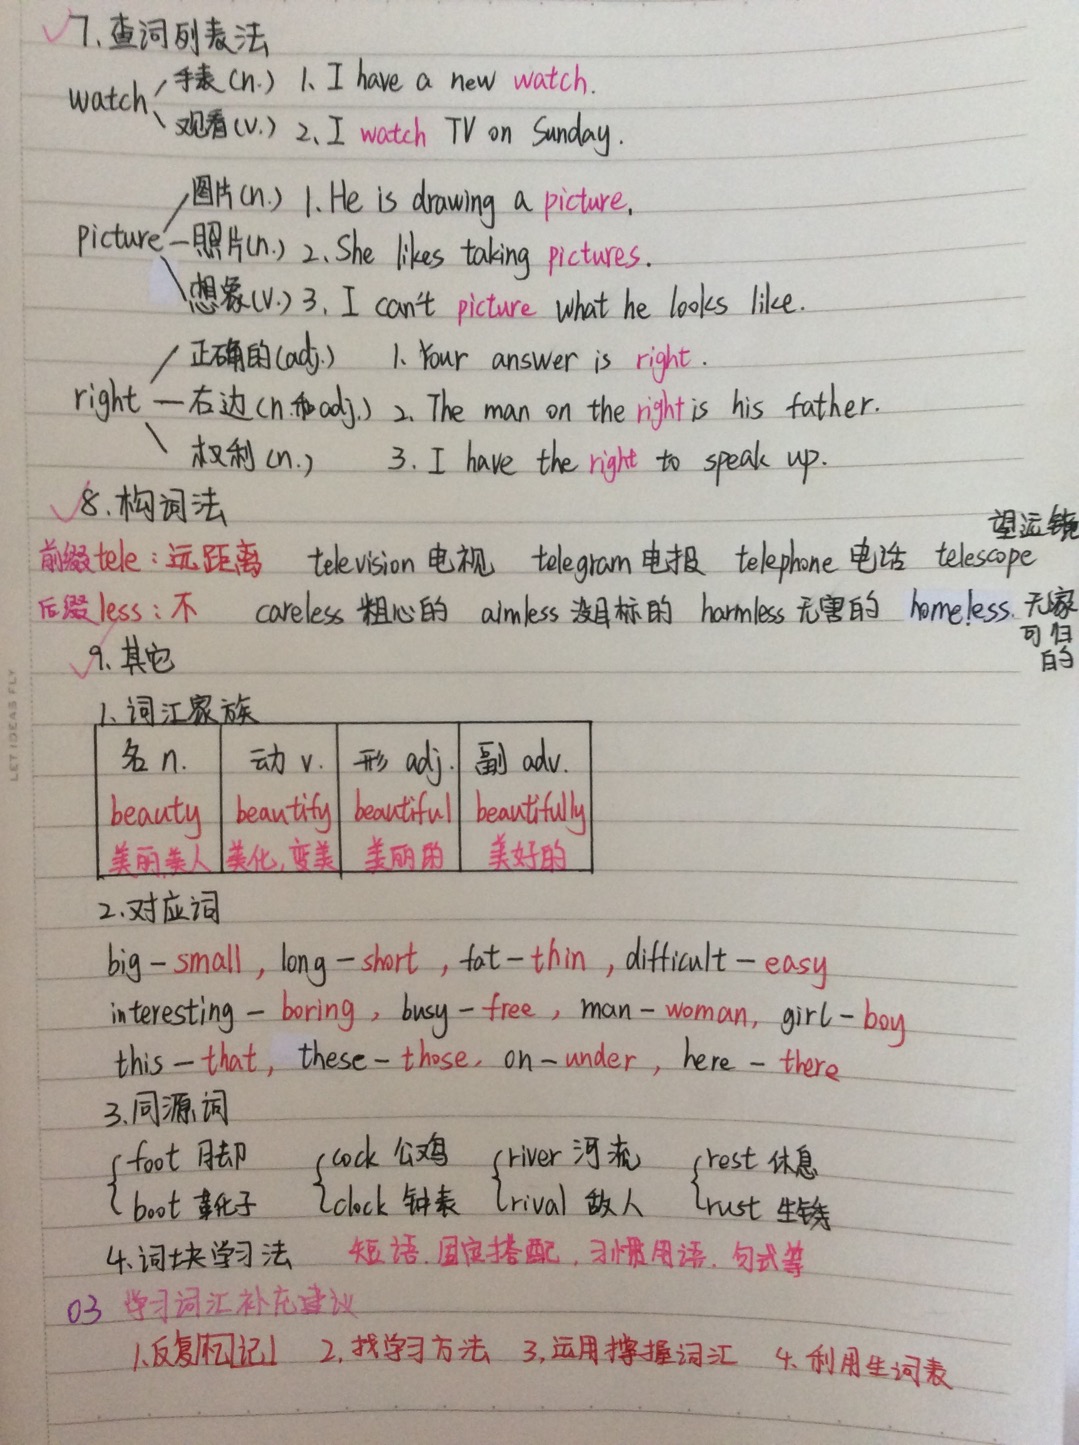 7、查词列表法
watch 手表(n.) 1、I have a new watch.
观看(v.) 2、I watch TV on Sunday.
图片(n.) 1. He is drawing a picture.
picture 照片(n.) 2. She likes taking pictures.
想象(v.) 3. I can't picture what he looks like.
正确的(adj.) 1. Your answer is right.
right 右边(n.和adj.) 2. The man on the right is his father.
权利(n.) 3. I have the right to speak up.
8.构词法
前缀tele：远距离 television 电视 telegram 电报 telephone 电话 telescope 望远镜
后缀less：不 careless 粗心的 aimless 没目标的 harmless 无害的 homeless 无家可归的
9.其它
1.词汇家族
名 n. 动 v. 形 adj. 副 adv.
beauty beautify beautiful beautifully
美丽,美人 美化,变美 美丽的 美好的
2.对应词
big－small，long－short，fat－thin，difficult－easy
interesting－boring，busy－free，man－woman，girl－boy
this－that，these－those，on－under，here－there
3.同源词
foot 脚 cock 公鸡 river 河流 rest 休息
boot 靴子 clock 钟表 rival 敌人 rust 生锈
4.词块学习法 短语.固定搭配，习惯用语.句式等
03 学习词汇补充建议
1.反复 记 2.找学习方法 3.运用掌握词汇 4.利用生词表
LET IDEAS FLY